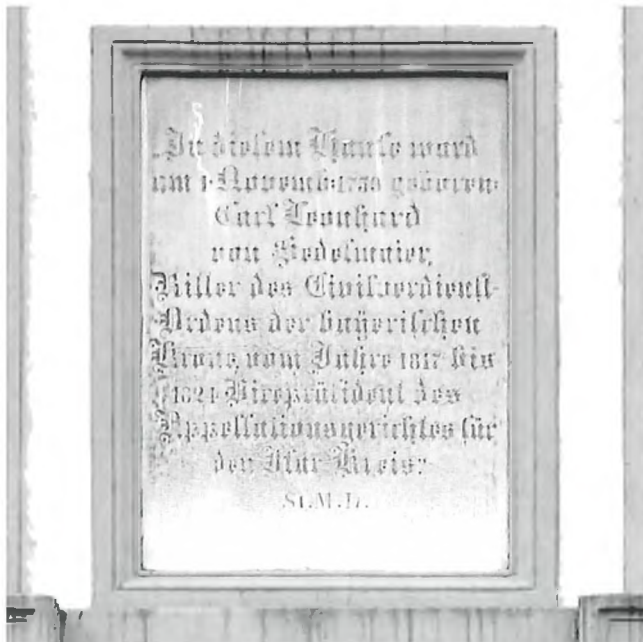 In diesem Hause ward
am 1 Novemb: geboren
Carl Leonhard
von
Ritter des Civilverdienst-
Ordens der bayerischen
Krone, vom Jahre 1817 bis
1824 Vicepräsident des
Appellationsgerichtes für
den Isar Kreis: